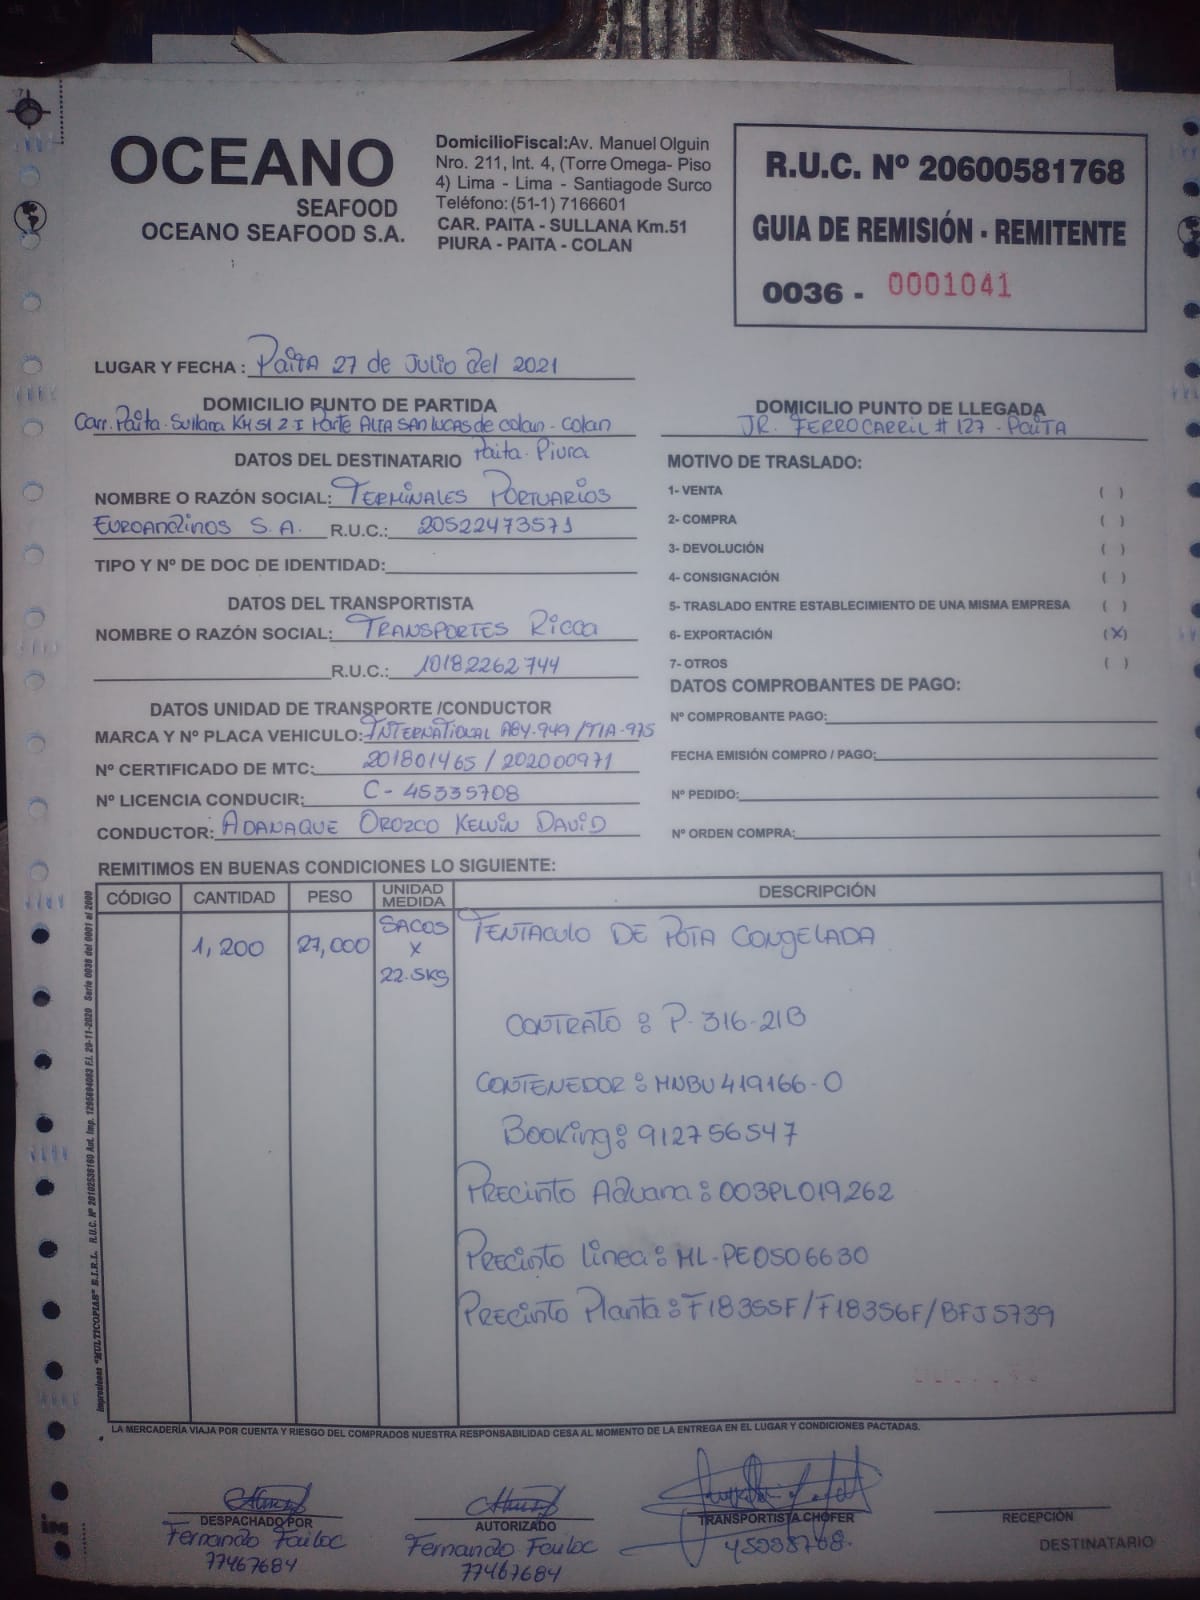 OCEANO
SEAFOOD
OCEANO SEAFOOD S.A.
DomicilioFiscal:Av. Manuel Olguin
Nro. 211, Int. 4, (Torre Omega- Piso
4) Lima - Lima - Santiagode Surco
Teléfono: (51-1) 7166601
CAR. PAITA - SULLANA Km.51
PIURA - PAITA - COLAN
R.U.C. Nº 20600581768
GUIA DE REMISIÓN - REMITENTE
0036 - 0001041
LUGAR Y FECHA : Paita 27 de Julio del 2021
DOMICILIO PUNTO DE PARTIDA
Carr. Paita - Sullana KM 51 2 I Parte ALTA SAN LUCAS de colan - Colan
Paita - Piura
DOMICILIO PUNTO DE LLEGADA
JR. FERROCARRIL # 127 - PAITA
DATOS DEL DESTINATARIO
NOMBRE O RAZÓN SOCIAL: TERMINALES PORTUARIOS
EUROANDINOS S.A. R.U.C.: 20522473571
TIPO Y Nº DE DOC DE IDENTIDAD:
DATOS DEL TRANSPORTISTA
NOMBRE O RAZÓN SOCIAL: TRANSPORTES Ricca
R.U.C.: 10182262744
DATOS UNIDAD DE TRANSPORTE /CONDUCTOR
MARCA Y Nº PLACA VEHICULO: INTERNATIONAL A8Y-949 / T1A-975
Nº CERTIFICADO DE MTC: 201801465 / 202000971
Nº LICENCIA CONDUCIR: C - 45335708
CONDUCTOR: ADANAQUE OROZCO KELVIN DAVID
MOTIVO DE TRASLADO:
1- VENTA ( )
2- COMPRA ( )
3- DEVOLUCIÓN ( )
4- CONSIGNACIÓN ( )
5- TRASLADO ENTRE ESTABLECIMIENTO DE UNA MISMA EMPRESA ( )
6- EXPORTACIÓN (X)
7- OTROS ( )
DATOS COMPROBANTES DE PAGO:
Nº COMPROBANTE PAGO:
FECHA EMISIÓN COMPRO / PAGO:
Nº PEDIDO:
Nº ORDEN COMPRA:
REMITIMOS EN BUENAS CONDICIONES LO SIGUIENTE:
CÓDIGO CANTIDAD PESO UNIDAD MEDIDA DESCRIPCIÓN
1,200 27,000 SACOS X 22.5KG TENTACULO DE POTA CONGELADA
CONTRATO : P-316-21B
CONTENEDOR : MNBU 419166-0
Booking: 912756547
PRECINTO Aduana : 003PL019262
PRECINTO linea : ML-PE0506630
PRECINTO Planta : F18355F / F18356F / BFJ5739
Impresiones "MULTICOPIAS" E.I.R.L. R.U.C. Nº 20102536160 Aut. Imp. 1295694083 F.I. 20-11-2020 Serie 0036 del 0001 al 2000
LA MERCADERÍA VIAJA POR CUENTA Y RIESGO DEL COMPRADOS NUESTRA RESPONSABILIDAD CESA AL MOMENTO DE LA ENTREGA EN EL LUGAR Y CONDICIONES PACTADAS.
DESPACHADO POR
Fernando
77467684
AUTORIZADO
Fernando
77467684
TRANSPORTISTA CHOFER
RECEPCIÓN
DESTINATARIO